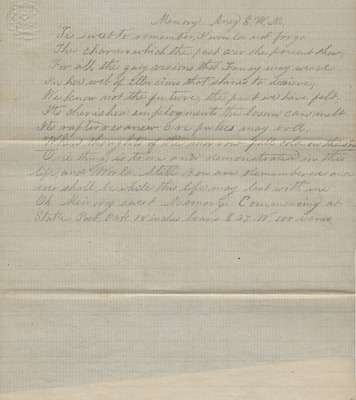 Memory. Amy E. W. M.
'Tis sweet to remember, I would not forgo
The charm which the past o'er the present throw,
For all the gay visions that Fancy may weave
In her web of illusions that shines to deceive,
We know not the future, the past we have felt.
Its cherished enjoyments the bosom can melt
Its raptures anew our pulses may roll,
When thoughts of the morrow fall cold on the soul
One thing is true and demonstrated in this
life and World Still you are remembered and
ever shall be while this life may last with me
Oh Memory sweet Memory. Commencing at
Stake Post Oak 18 inches bears S 27 W 100 varas